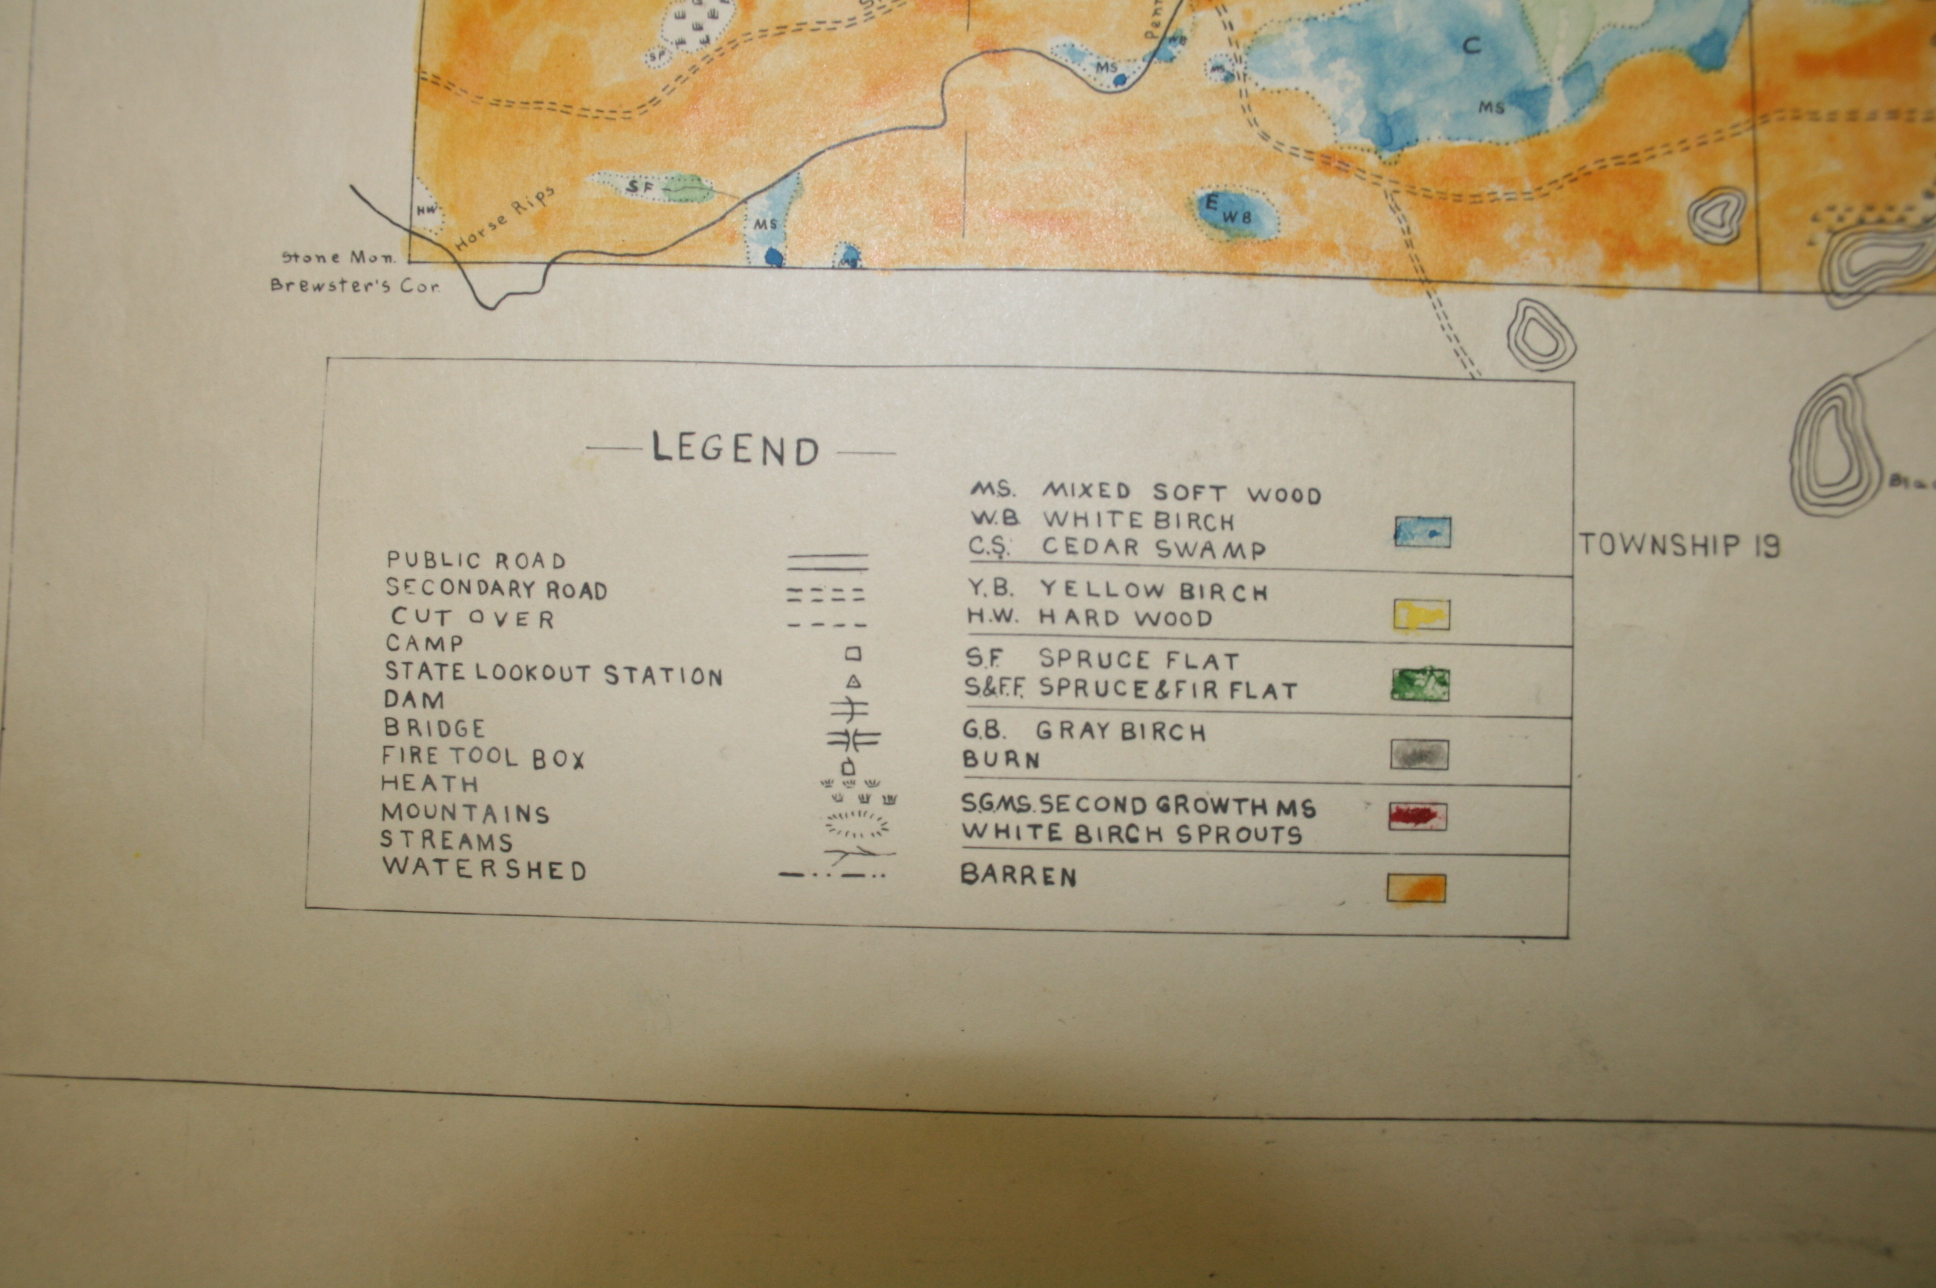 C
MS
E
WB
MS
MS
MS
SF
SF
Horse Rips
HW
Stone Mon.
Brewster's Cor.
TOWNSHIP 19
LEGEND
PUBLIC ROAD
SECONDARY ROAD
CUT OVER
CAMP
STATE LOOKOUT STATION
DAM
BRIDGE
FIRE TOOL BOX
HEATH
MOUNTAINS
STREAMS
WATERSHED
MS. MIXED SOFT WOOD
W.B. WHITE BIRCH
C.S. CEDAR SWAMP
Y.B. YELLOW BIRCH
H.W. HARD WOOD
S.F. SPRUCE FLAT
S&F.F. SPRUCE & FIR FLAT
G.B. GRAY BIRCH
BURN
S.G.M.S. SECOND GROWTH MS
WHITE BIRCH SPROUTS
BARREN